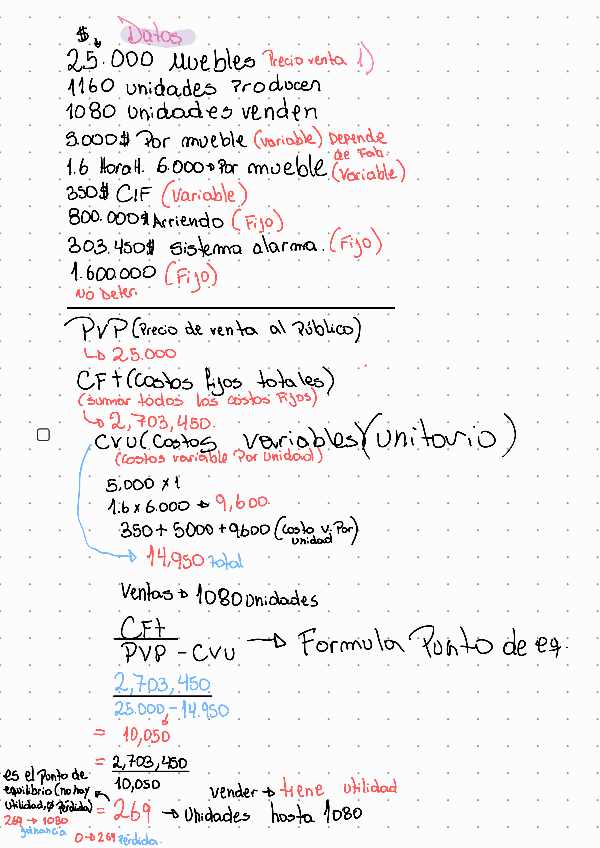 $ Datos
25.000 Muebles Precio venta 1)
1160 unidades Producen
1080 unidades venden
5.000$ Por mueble (variable) Depende de Fab.
1.6 Hora H. 6.000→Por mueble (Variable)
350$ CIF (Variable)
800.000$ Arriendo (Fijo)
303.450$ sistema alarma. (Fijo)
1.600.000 (Fijo)
No Deter.
PVP (Precio de venta al Público)
↳ 25.000
CFt (Costos fijos totales)
(sumar todos los costos Fijos)
↳ 2,703,450.
CVU (Costos variables) (unitario)
(Costos variable Por Unidad)
5.000 x 1
1.6 x 6.000 → 9,600.
350 + 5000 + 9600 (Costo v. Por unidad)
14,950 total
Ventas → 1080 Unidades
CFt
PVP - CVU → Formula Punto de eq.
2,703,450
25.000 - 14.950
= 10,050
= 2,703,450
10,050
es el Punto de
equilibrio (no hay
utilidad, Ø Pérdida)
vender → tiene utilidad
= 269 → Unidades hasta 1080
269 → 1080
ganancia
0 → 269 Pérdida.